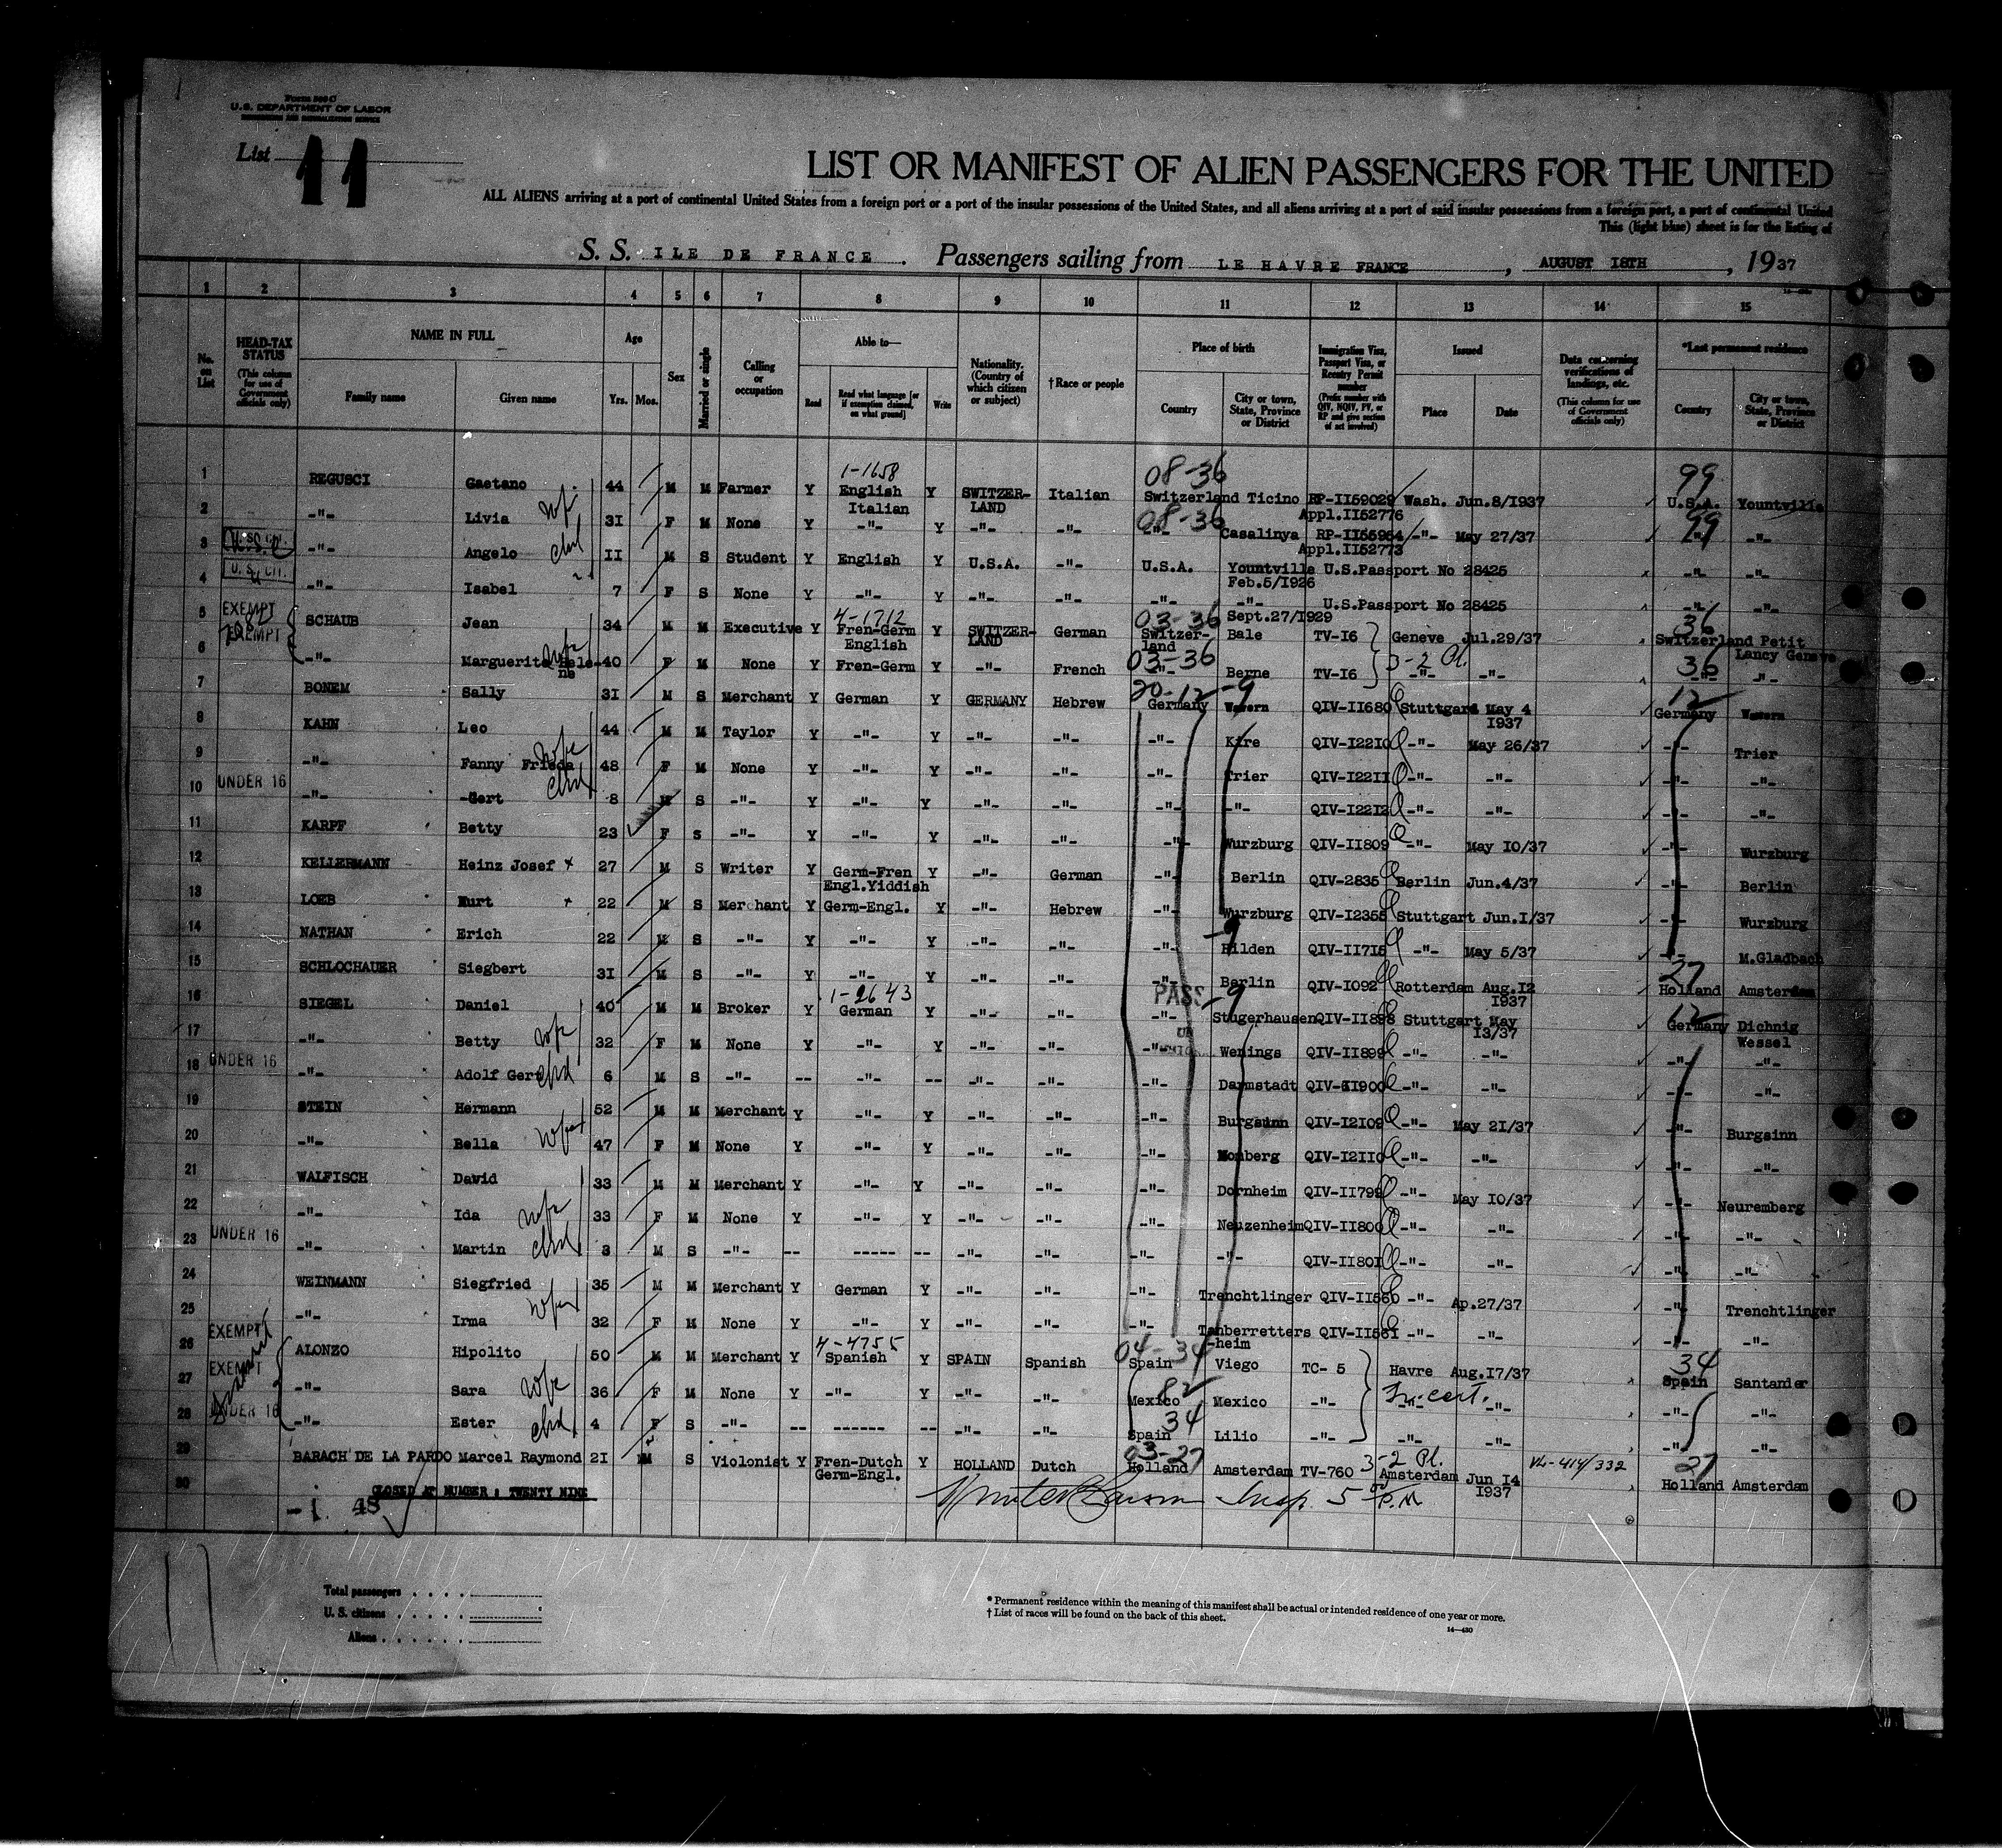 Form 500 C
U.S. DEPARTMENT OF LABOR
List 11
LIST OR MANIFEST OF ALIEN PASSENGERS FOR THE UNITED
ALL ALIENS arriving at a port of continental United States from a foreign port or a port of the insular possessions of the United States, and all aliens arriving at a port of said insular possessions from a foreign port, a port of continental United
This (light blue) sheet is for the listing of
S. S. ILE DE FRANCE. Passengers sailing from LE HAVRE FRANCE, AUGUST I8TH, 1937
1 2 3 4 5 6 7 8 9 10 11 12 13 14 15
No. on List
HEAD-TAX STATUS (This column for use of Government officials only)
NAME IN FULL Family name Given name
Age Yrs. Mos.
Sex
Married or single
Calling or occupation
Able to— Read Read what language [or if exemption claimed, on what ground] Write
Nationality. (Country of which citizen or subject)
† Race or people
Place of birth Country City or town, State, Province or District
Immigration Visa, Passport Visa, or Reentry Permit number (Prefix number with QIV, NQIV, PV, or RP and give section of act involved)
Issued Place Date
Data concerning verifications of landings, etc. (This column for use of Government officials only)
*Last permanent residence Country City or town, State, Province or District
1-1658 08-36 99
1 REGUSCI Gaetano 44 M M Farmer Y English Italian Y SWITZERLAND Italian Switzerland Ticino RP-II59029 Appl.II52776 Wash. Jun.8/I937 U.S.A. Yountville
2 -"- Livia wfe 3I F M None Y -"- Y -"- -"- 08-36 -"- Casalinya RP-II55954 Appl.II52773 -"- May 27/37 99 -"- -"-
3 U.S. CIT. -"- Angelo chd II M S Student Y English Y U.S.A. -"- U.S.A. Yountville Feb.5/I926 U.S.Passport No 28425 -"- -"-
4 U.S. CIT. -"- Isabel 7 F S None Y -"- Y -"- -"- -"- -"- Sept.27/I929 U.S.Passport No 28425 -"- -"-
5 EXEMPT SCHAUB Jean 34 M M Executive Y 4-1712 Fren-Germ English Y SWITZERLAND German 03-36 Switzerland Bale TV-I6 Geneve Jul.29/37 36 Switzerland Petit Lancy Geneve
6 EXEMPT -"- Marguerite Helene wfe 40 F M None Y Fren-Germ Y -"- French 03-36 -"- Berne TV-I6 3-2 Pl. -"- -"- 36 -"- -"-
7 BONEM Sally 3I M S Merchant Y German Y GERMANY Hebrew 20-12-9 Germany QIV-II680 Stuttgard May 4 I937 12 Germany
8 KAHN Leo 44 M M Taylor Y -"- Y -"- -"- -"- QIV-I22I0 -"- May 26/37 -"- Trier
9 -"- Fanny Frieda wfe 48 F M None Y -"- Y -"- -"- -"- Trier QIV-I22II -"- -"- -"- -"-
10 UNDER 16 -"- Gert chd 8 M S -"- Y -"- Y -"- -"- -"- -"- QIV-I22I2 -"- -"- -"- -"-
11 KARPF Betty 23 F S -"- Y -"- Y -"- -"- -"- Wurzburg QIV-II809 -"- May I0/37 -"- Wurzburg
12 KELLERMANN Heinz Josef x 27 M S Writer Y Germ-Fren Engl.Yiddish Y -"- German -"- Berlin QIV-2835 Berlin Jun.4/37 -"- Berlin
13 LOEB Kurt x 22 M S Merchant Y Germ-Engl. Y -"- Hebrew -"- Wurzburg QIV-I2355 Stuttgart Jun.I/37 -"- Wurzburg
14 NATHAN Erich 22 M S -"- Y -"- Y -"- -"- -"- -9 Hilden QIV-II7I5 -"- May 5/37 -"- M.Gladbach
15 SCHLOCHAUER Siegbert 3I M S -"- Y -"- Y -"- -"- -"- Berlin QIV-I092 Rotterdam Aug.I2 I937 27 Holland Amsterdam
16 SIEGEL Daniel 40 M M Broker Y 1-2643 German Y -"- -"- PASS -"- -9 Stugerhausen QIV-II898 Stuttgart May I3/37 12 Germany Dichnig Wessel
17 -"- Betty wfe 32 F M None Y -"- Y -"- -"- -"- Wenings QIV-II899 -"- -"- -"- -"-
18 UNDER 16 -"- Adolf Gert chd 6 M S -"- -- -"- -- -"- -"- -"- Darmstadt QIV-II900 -"- -"- -"- -"-
19 STEIN Hermann 52 M M Merchant Y -"- Y -"- -"- -"- Burgsinn QIV-I2I09 -"- May 2I/37 -"- Burgsinn
20 -"- Bella wfe 47 F M None Y -"- Y -"- -"- -"- Momberg QIV-I2II0 -"- -"- -"- -"-
21 WALFISCH David 33 M M Merchant Y -"- Y -"- -"- -"- Dornheim QIV-II799 -"- May I0/37 -"- Neuremberg
22 -"- Ida wfe 33 F M None Y -"- Y -"- -"- -"- Neuzenheim QIV-II800 -"- -"- -"- -"-
23 UNDER 16 -"- Martin chd 3 M S -"- -- ----- -- -"- -"- -"- -"- QIV-II80I -"- -"- -"- -"-
24 WEINMANN Siegfried 35 M M Merchant Y German Y -"- -"- -"- Trenchtlinger QIV-II560 -"- Ap.27/37 -"- Trenchtlinger
25 -"- Irma wfe 32 F M None Y -"- Y -"- -"- -"- Tanberretters-heim QIV-II56I -"- -"- -"- -"-
26 EXEMPT ALONZO Hipolito 50 M M Merchant Y 4-4755 Spanish Y SPAIN Spanish 04-34 Spain Viego TC- 5 Havre Aug.I7/37 34 Spain Santander
27 EXEMPT -"- Sara wfe 36 F M None Y -"- Y -"- -"- 82 Mexico Mexico -"- -"- -"- -"- -"-
28 UNDER 16 -"- Ester chd 4 F S -"- -- ------ -- -"- -"- 34 Spain Lilio -"- -"- -"- -"- -"-
29 BARACH DE LA PARDO Marcel Raymond 2I M S Violonist Y Fren-Dutch Germ-Engl. Y HOLLAND Dutch 03-27 Holland Amsterdam TV-760 3-2 Pl. Amsterdam Jun I4 I937 VL-414/332 27 Holland Amsterdam
30 CLOSED AT NUMBER : TWENTY NINE
Insp 5 P.M
Total passengers
U. S. citizens
Aliens
* Permanent residence within the meaning of this manifest shall be actual or intended residence of one year or more.
† List of races will be found on the back of this sheet.
14—430